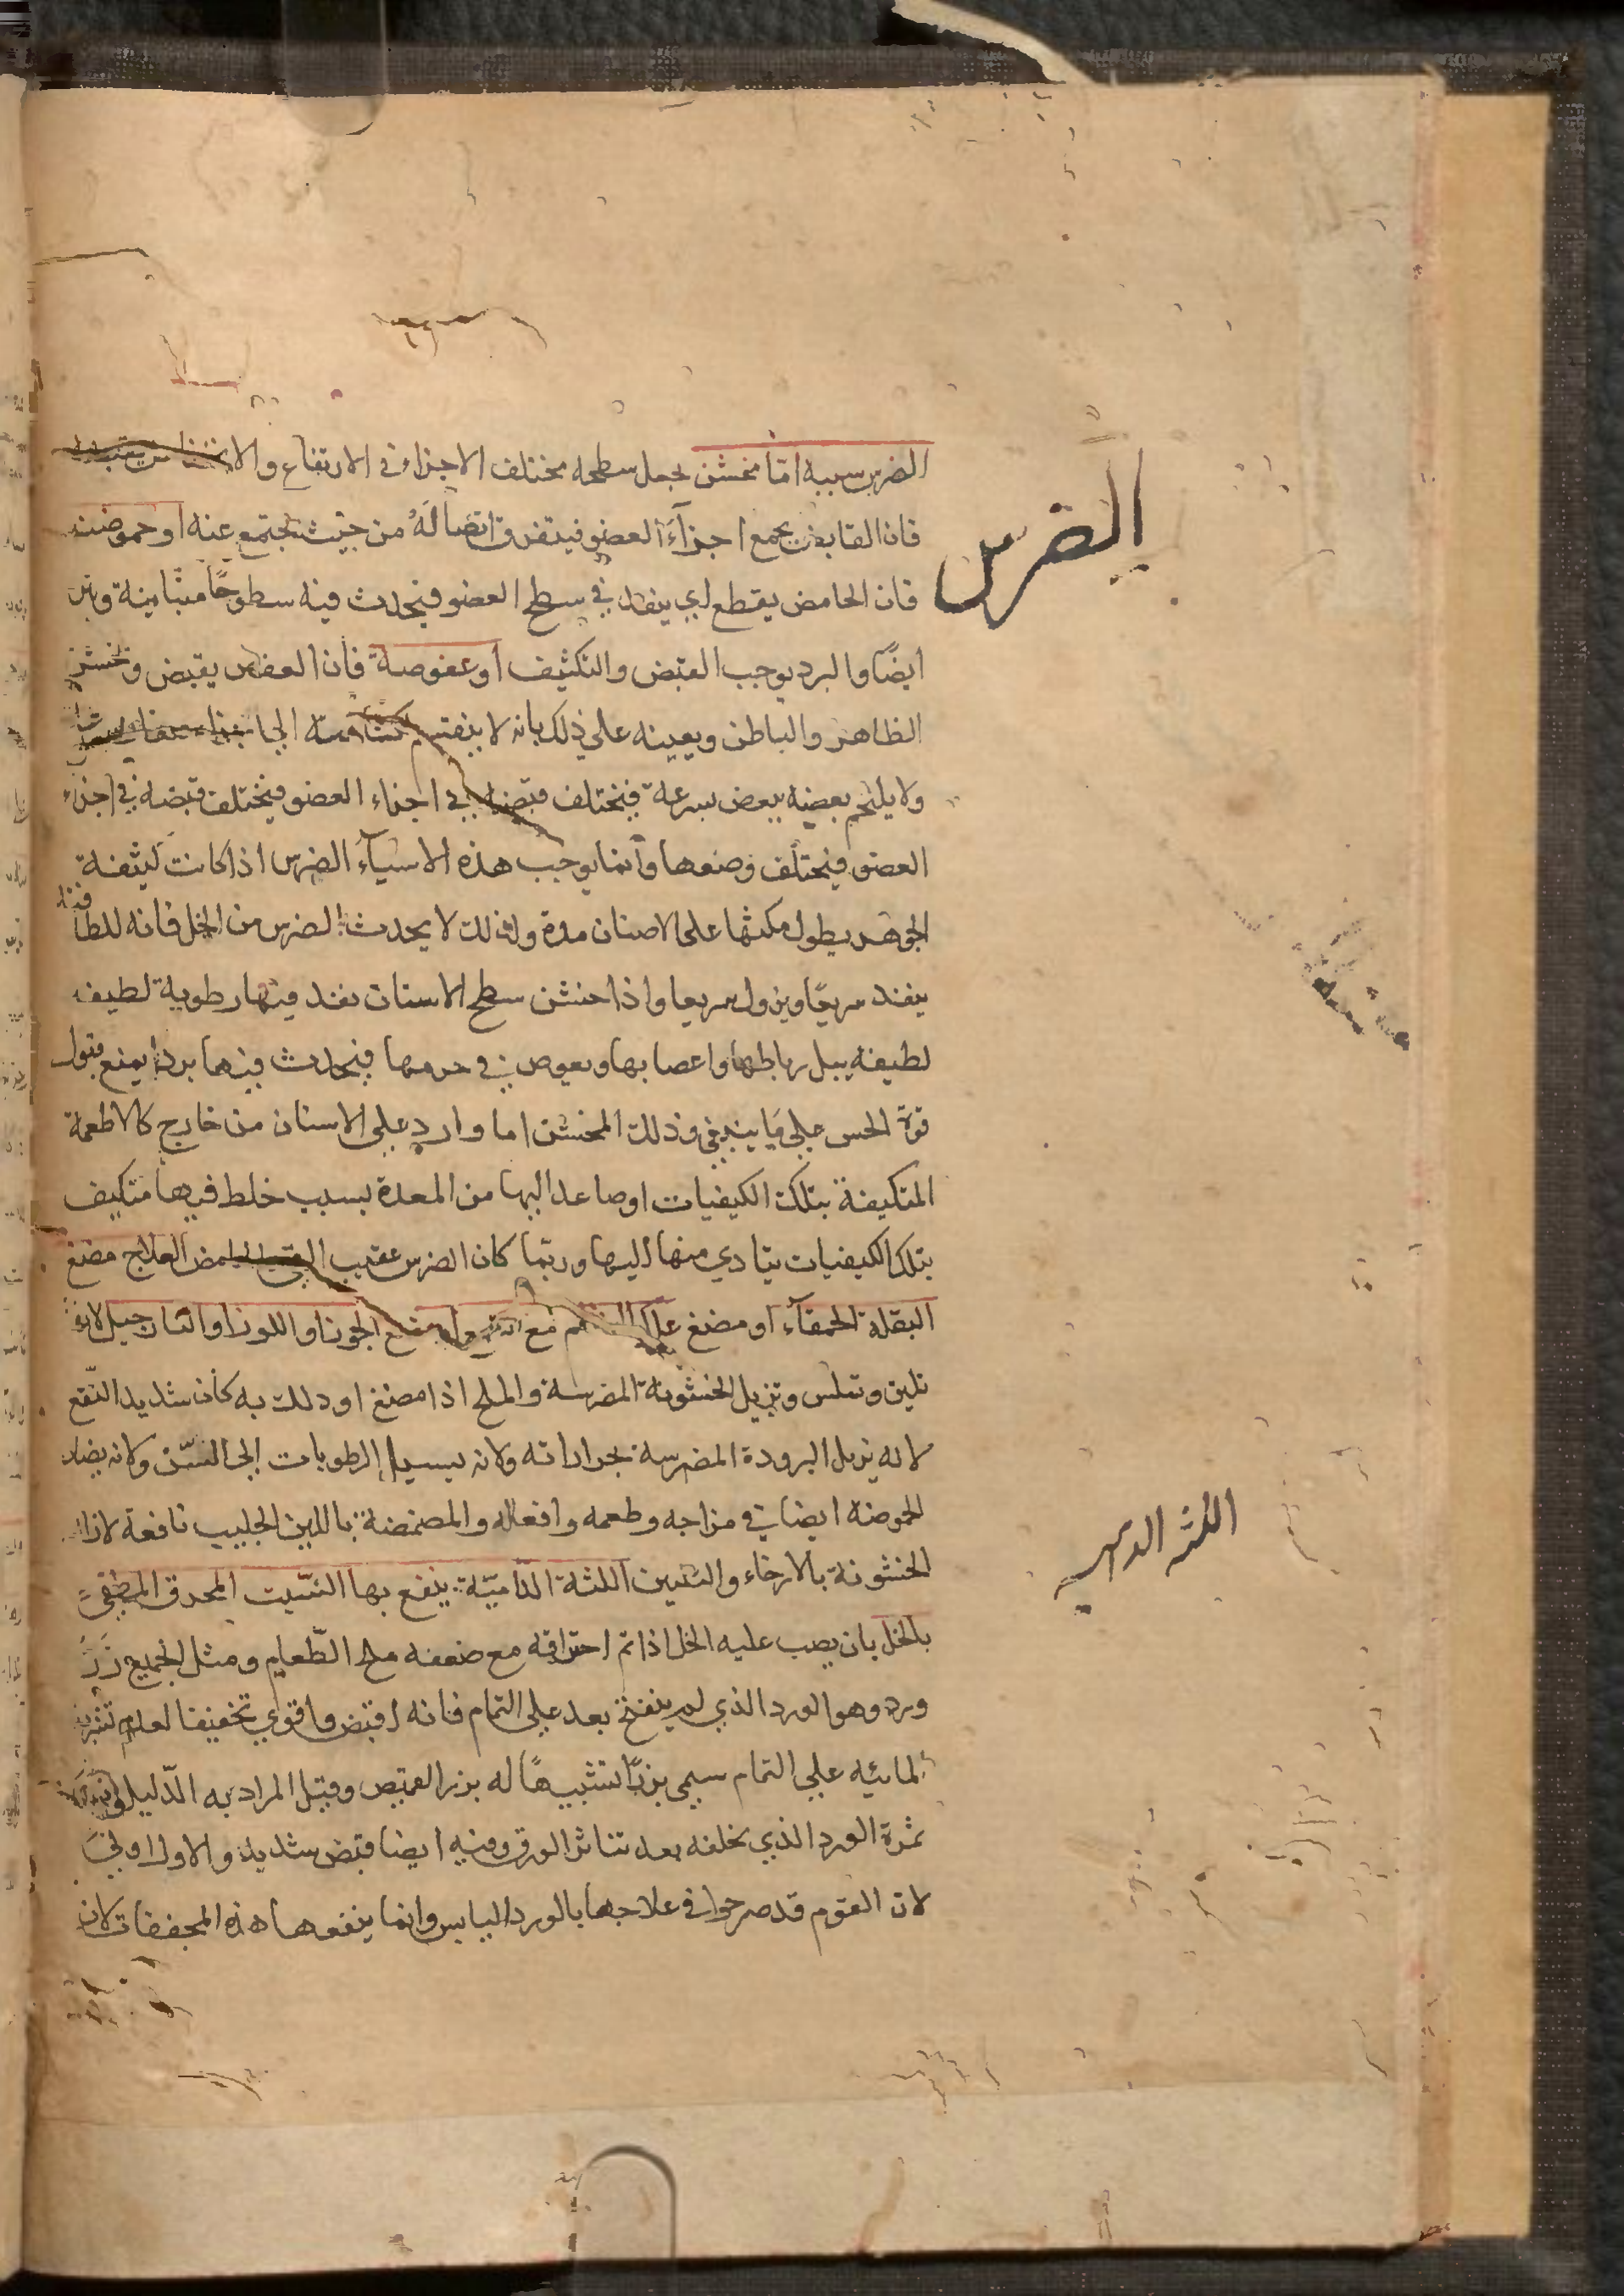 الضرس
الضرس سببه اما مخشن يجعل سطحه مختلف الاجزاء في الارتفاع والانخفاض
فان القابض يجمع اجزآء العضو فيتفرق اتصاله من حيث يجتمع عنه او حموضته
فان الحامض يقطع لي ينفد في سطح العضو فيحدث فيه سطوحًا متباينة
ايضًا والبرد يوجب القبض والتكثيف او عفوصة فان العفص يقبض وتخشن
الظاهر والباطن ويعينه على ذلك بانه لا ينقسم الى
ولا يلتحم بعضه ببعض بسرعة فيختلف قبضه في اجزاء العضو فيختلف قبضه في اجزاء
العضو فيختلف وضعها وانما يوجب هذه الاشيآء الضرس اذا كانت كثيفة
الجوهر يطول مكثها على الاسنان مدة ولذلك لا يحدث الضرس من الخل فانه للطافته
ينفد سريعًا ويزول سريعا واذا خشن سطح الاسنان نفد فيها رطوبة لطيفه
لطيفه يبل رباطها واعصابها ويغوص في جرمها فيحدث فيها بردا يمنع قبول
قوة الحس على ما ينبغي وذلك المخشن اما وارد على الاسنان من خارج كالاطعمة
المتكيفة بتلك الكيفيات او صاعد اليها من المعدة بسبب خلط فيها متكيف
بتلك الكيفيات يتادي منها اليها وربما كان الضرس عقيب القي الحامض العلاج مضغ
البقلة الحمقآء او مضغ علك مع الجوز او اللوز او النارجيل لانه
تلين وتملس وتزيل الخشونة المضرسة والملح اذا مضغ او دلك به كان شديد النفع
لانه يزيل البرودة المضرسة بحراراته ولانه يسيل الرطوبات الى السن ولانه يضاد
الحموضة ايضا في مزاجه وطعمه وافعاله والمضمضة باللبن الحليب نافعة لازالة
الخشونة بالارخاء والتليين اللثة الدامية ينفع بها الشبت المحرق المطفى
بالخل بان يصب عليه الخل اذا تم احتراقه مع ضعفه ملح الطعام ومثل الجميع زر
ورد وهو الورد الذي لم ينفتح بعد على التمام فانه اقبض واقوي تخفيفا لعدم
المائيه على التمام سمي بزرا تشبيهًا له بزر القميص وقيل المراد به الدليل
ثمرة الورد الذي يخلفه بعد تناثر الورق وفيه ايضا قبض شديد والاول اولى
لان القوم قد صرحوا في علاجها بالورد اليابس وانما ينفعها هذه المجففات لان
اللثه الداميه